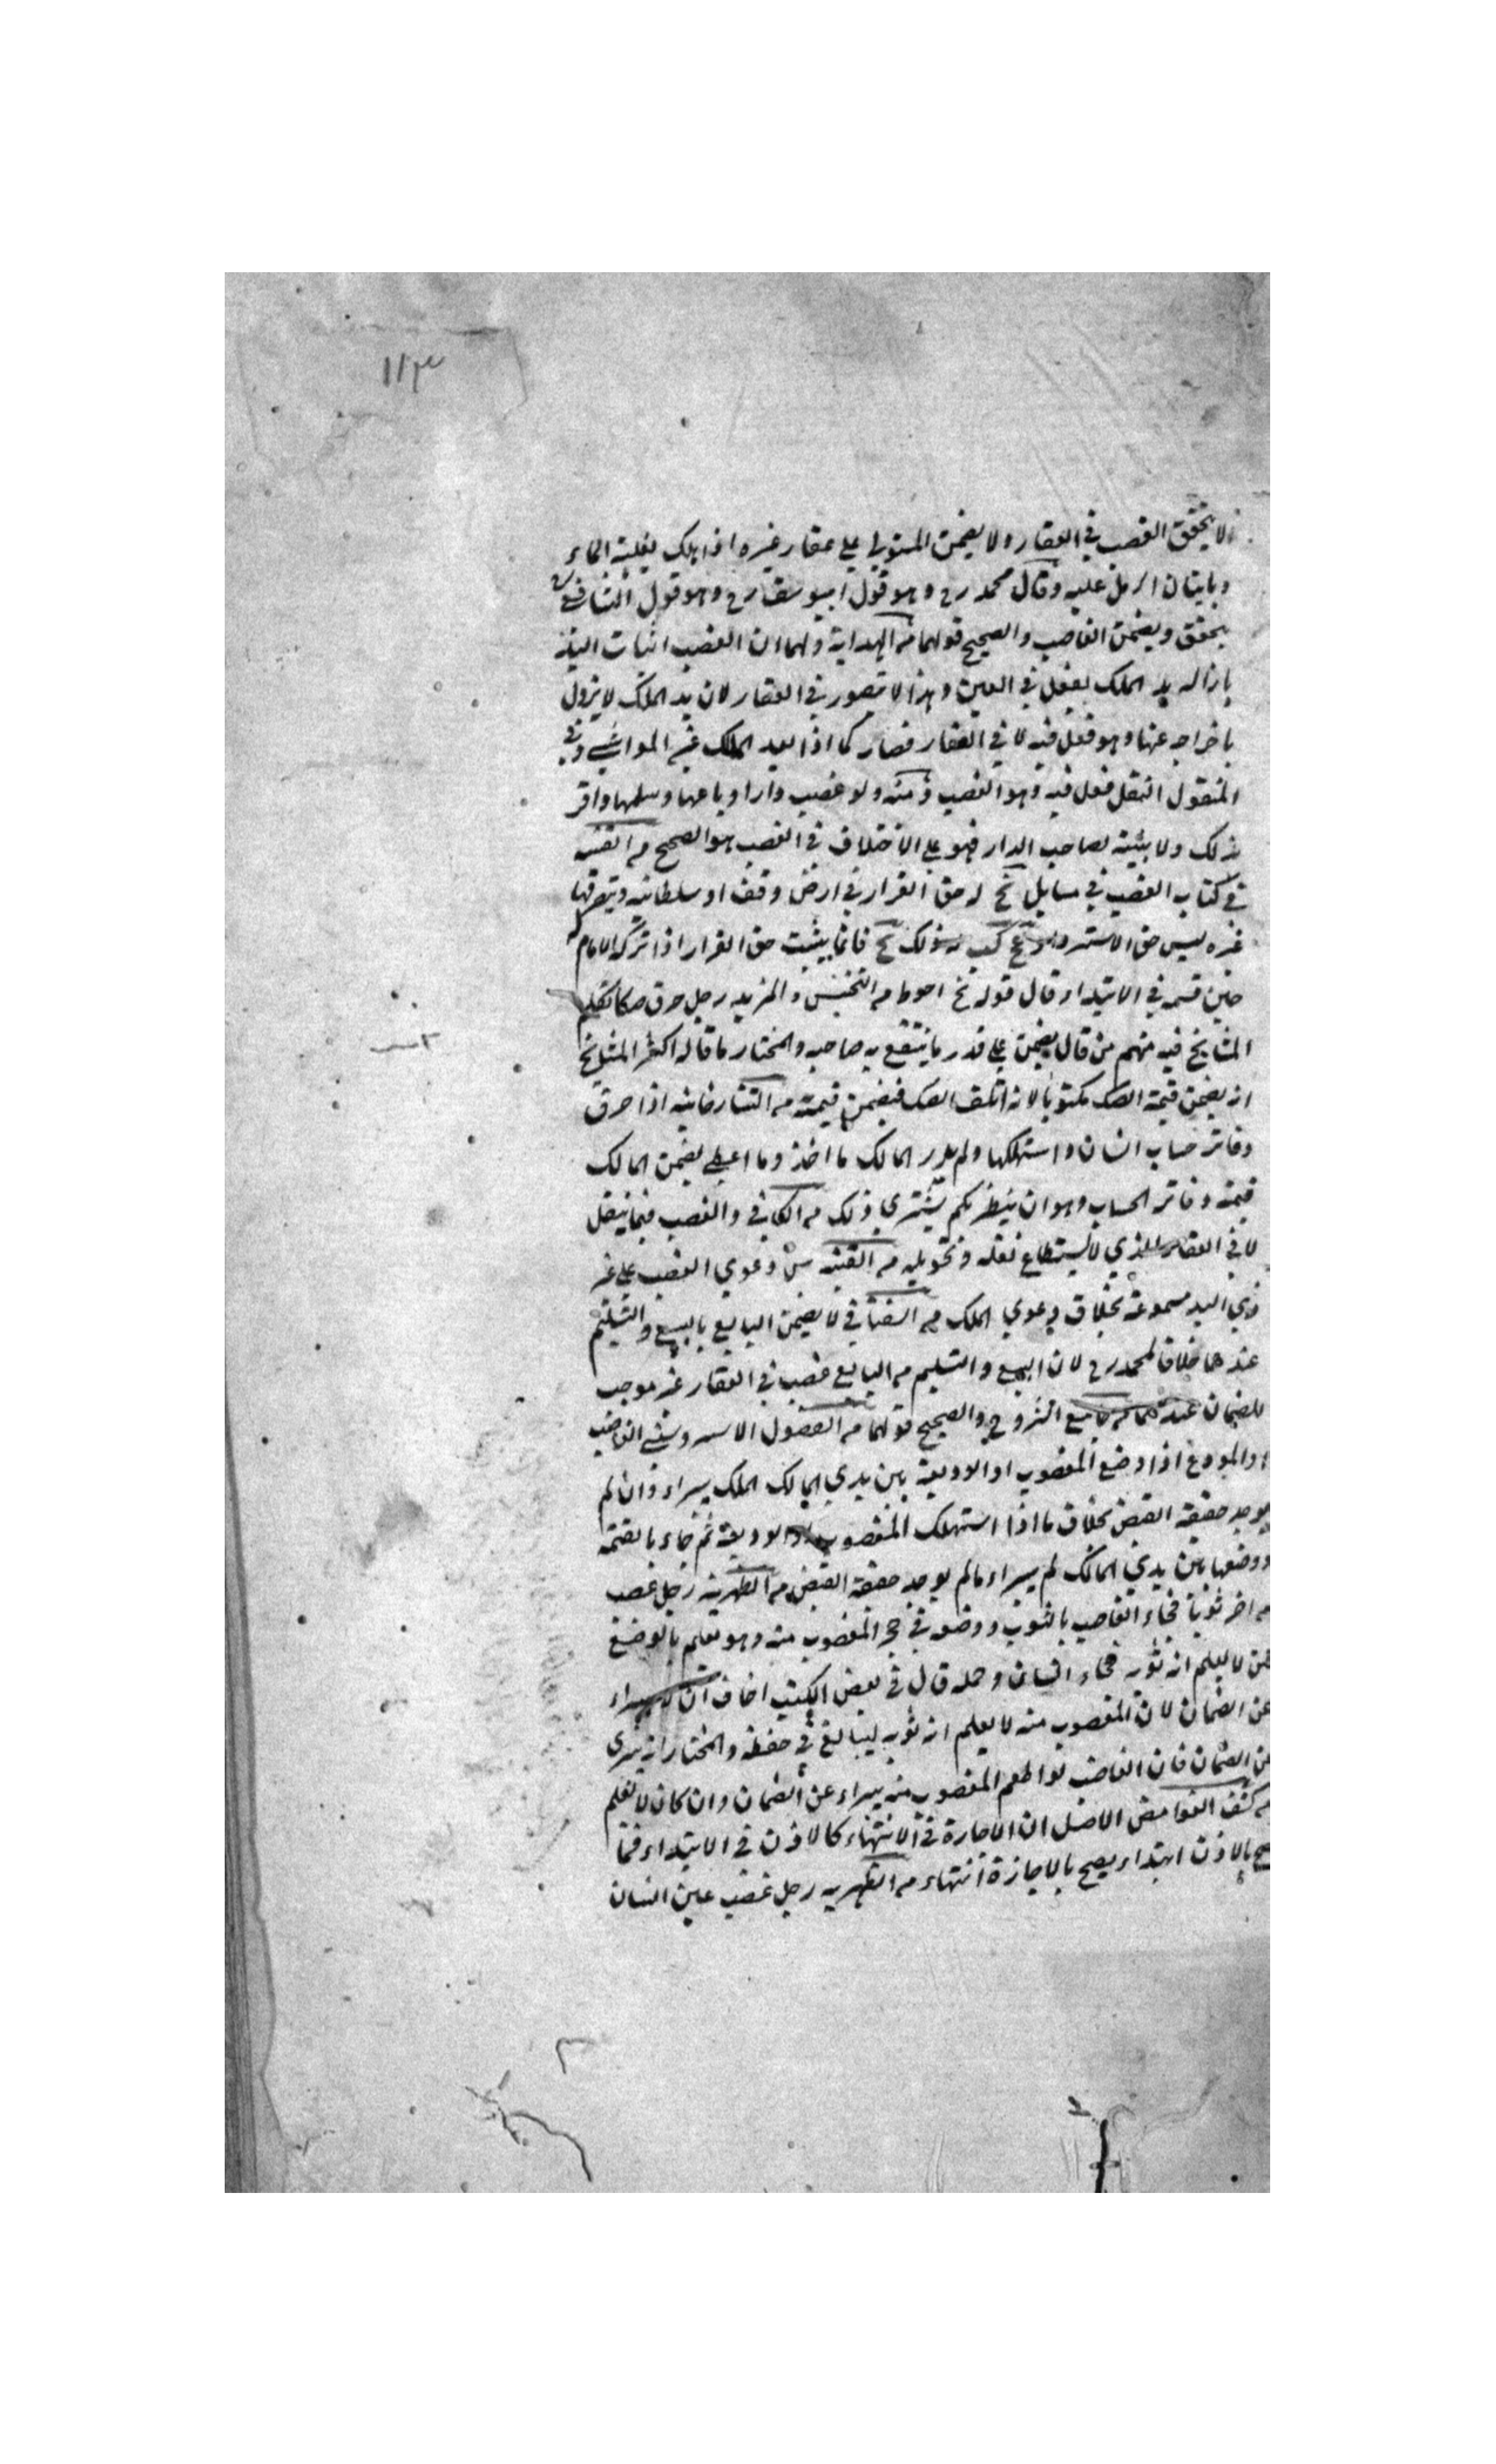 ١١٣
لا يتحقق الغصب في العقار ولا يضمن المستولي على عقار غيره اذا هلك بغلبة الماء
وباتيان الرمل عليه وقال محمد رح وهو قول ابيوسف رح وهو قول الشافعي
يتحقق ويضمن الغاصب والصحيح قولهما من الهداية ولهما ان الغصب اثبات اليد
بازالة يد الملك بفعل في العين وهذا لا يتصور في العقار لان يد الملك لا يزول
باخراجه عنها وهو فعل فيه لا في العقار فصار كما اذا بعد الملك عن المواشي وفي
المنقول النقل فعل فيه وهو الغصب ومنه ولو غصب دارا وباعها وسلمها واقر
بذلك ولا بينة لصاحب الدار فهو على الاختلاف في الغصب هو الصحيح من القنية
في كتاب الغصب في مسايل نج له حق القرار في ارض وقف او سلطانية ويتصرفها
غيره ليس حق الاسترداد نج فانما يثبت حق القرار اذا تركه الامام
حين قسم في الابتداء وقال قوله نج احوط من التجنيس والمزيد رجل حرق صكا تكلم
المشايخ فيه منهم من قال يضمن على قدر ما ينتفع به صاحبه والمختار ما قاله اكثر المشايخ
انه يضمن قيمة الصك مكتوبا لانه اتلف الصك فيضمن قيمته من التتارخانية اذا حرق
دفاتر حساب انسان واستهلكها ولم يدر المالك ما اخذ وما اعطى يضمن المالك
قيمة دفاتر الحساب وهو ان ينظر بكم يشتري ذلك من الكافي والغصب فيما ينقل
لا في العقار الذي لا يستطاع نقله وتحويله من القنية دعوي الغصب على غير
ذي اليد مسموعة بخلاف دعوي الملك من لا يضمن البايع بالبيع والتسليم
عندهما خلافا لمحمد رح لان البيع والتسليم من البايع غصب في العقار غير موجب
للضمان عندهما من جامع والصحيح قولهما من الفصول الغاصب
او المودع اذا وضع المغصوب او الوديعة بين يدي المالك الملك يبراء وان لم
يوجد حقيقة القبض بخلاف ما اذا استهلك المغصوب او الوديعة ثم جاء بالقيمة
ووضعها بين يدي المالك لم يبراء مالم يوجد حقيقة القبض من الظهرية رجل غصب
من اخر ثوبا فجاء الغاصب بالثوب ووضعه في حجر المغصوب منه وهو يعلم بالوضع
لكن لا يعلم انه ثوبه فجاء انسان وحمله قال في بعض الكتب اخاف ان لا يبراء
عن الضمان لان المغصوب منه لا يعلم انه ثوبه ليبالغ في حفظه والمختار انه يبرى
عن الضمان فان الغاصب لو اطعم المغصوب منه يبراء عن الضمان وان كان لا يعلم
من كشف الغوامض الاصل ان الاجازة في الانتهاء كالاذن في الابتداء فما
يصح بالاذن ابتداء يصح بالاجازة انتهاء من الظهريه رجل غصب عين انسان